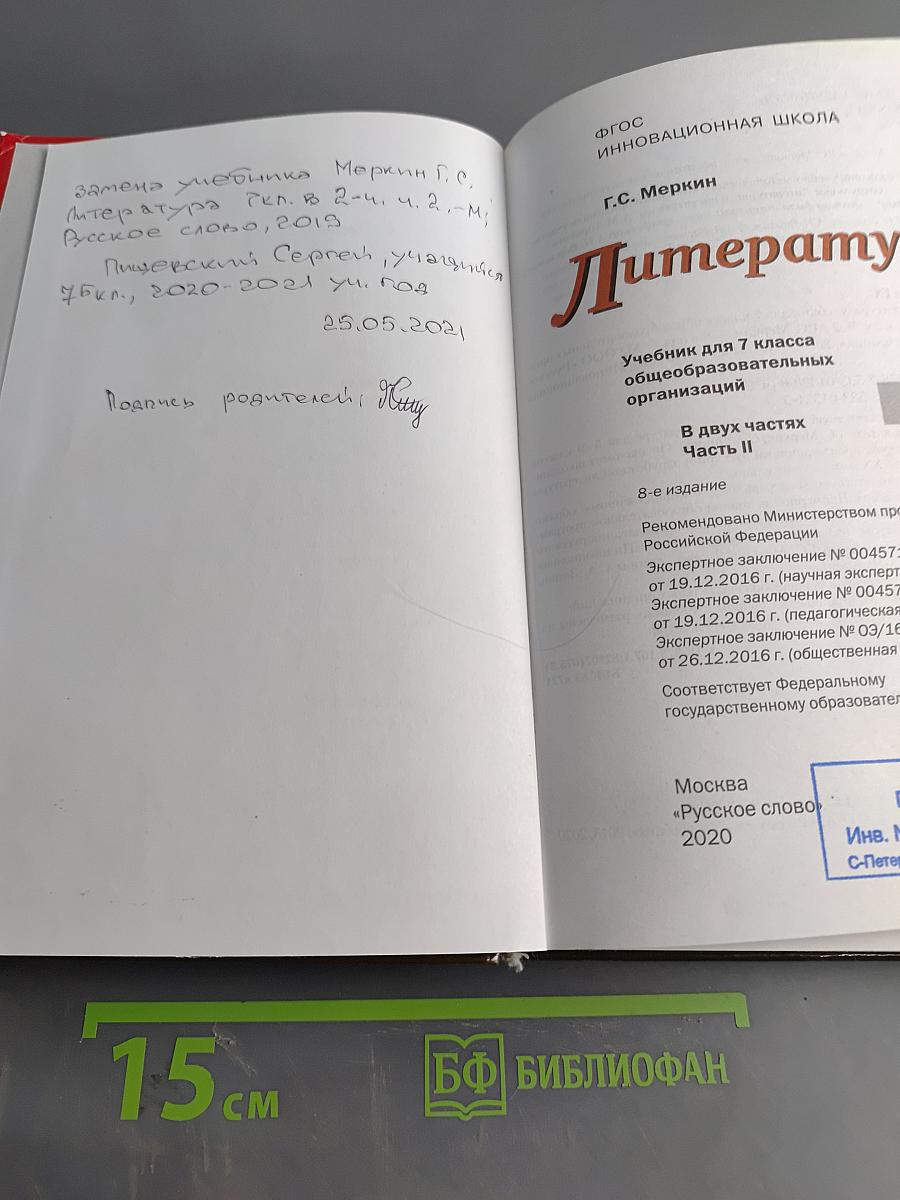 замена учебника Меркин Г.С.
Литература 7кл. в 2-ч. ч. 2.-М;
Русское слово, 2019
Пищевский Сергей, учащийся
7Бкл., 2020-2021 уч. год
25.05.2021
Подпись родителей:
ФГОС
ИННОВАЦИОННАЯ ШКОЛА
Г.С. Меркин
Литерату
Учебник для 7 класса
общеобразовательных
организаций
В двух частях
Часть II
8-е издание
Рекомендовано Министерством про
Российской Федерации
Экспертное заключение № 004571
от 19.12.2016 г. (научная эксперт
Экспертное заключение № 00457
от 19.12.2016 г. (педагогическая
Экспертное заключение № ОЭ/16
от 26.12.2016 г. (общественная
Соответствует Федеральному
государственному образовател
Москва
«Русское слово»
2020
Инв. №
С-Петер
15 см
БФ БИБЛИОФАН